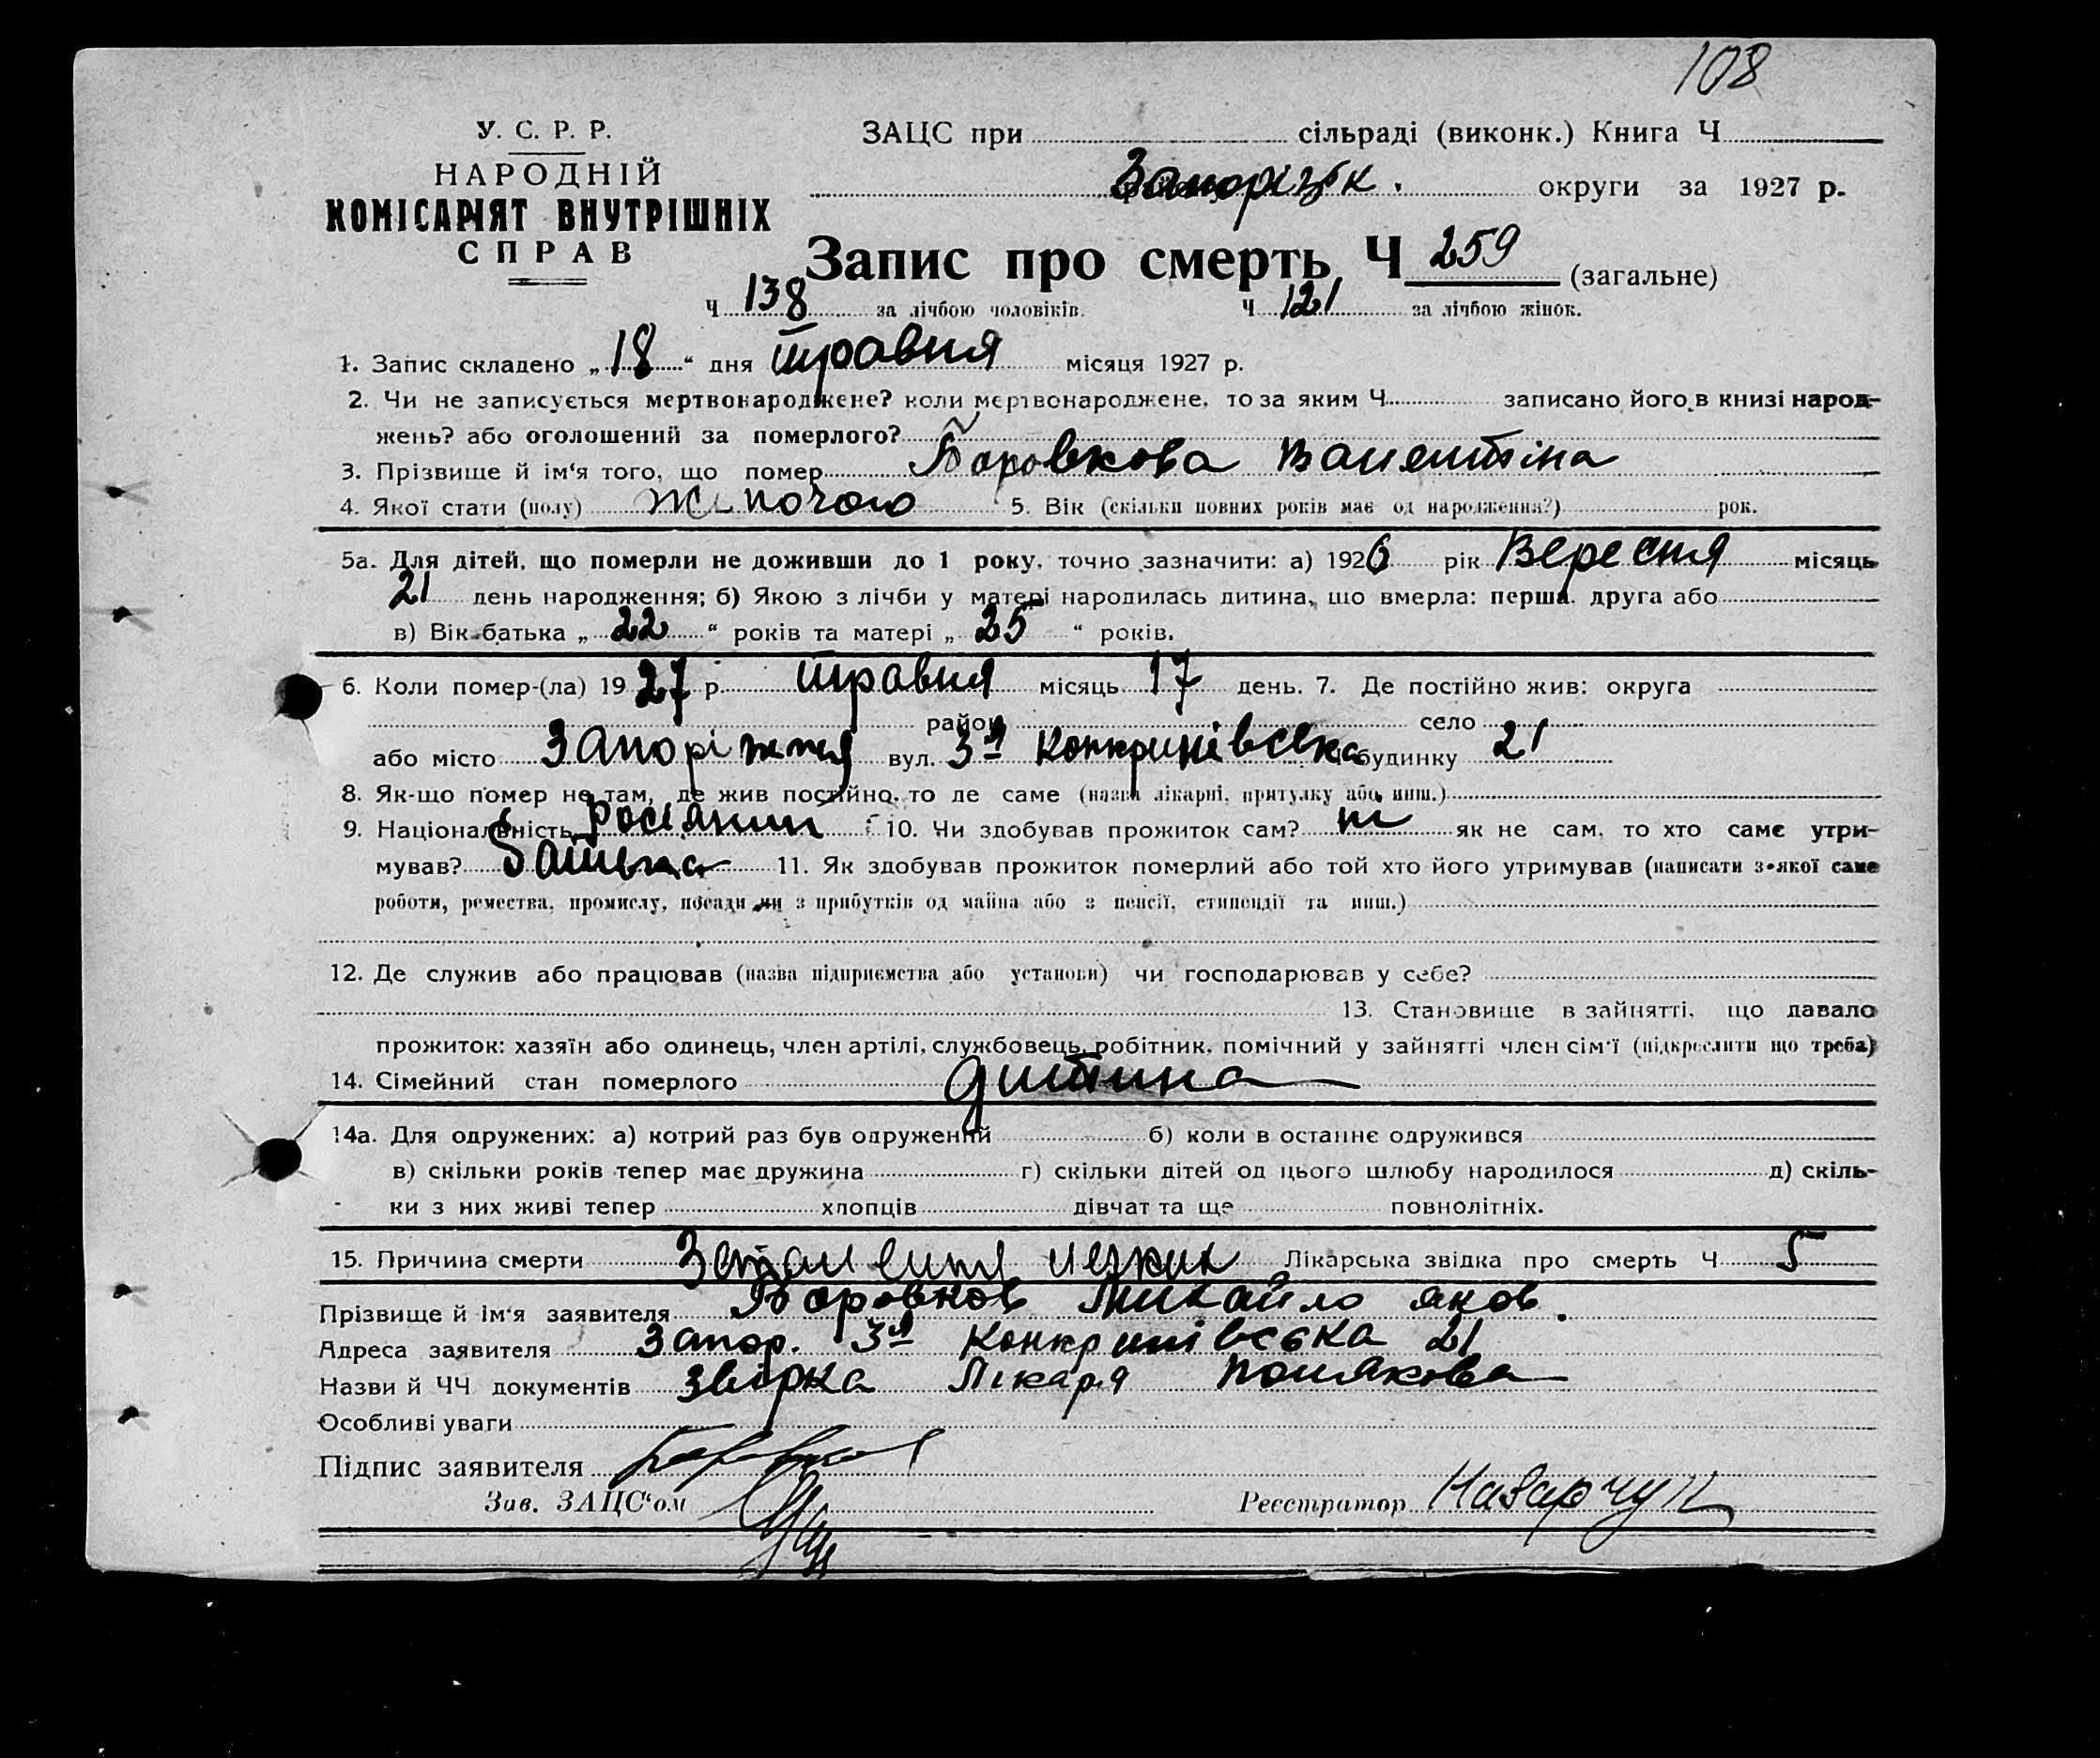 108
У. С. Р. Р.
НАРОДНІЙ
КОМІСАРІЯТ ВНУТРІШНІХ
СПРАВ
ЗАЦС при сільраді (виконк.) Книга Ч
Запорізьк. округи за 1927 р.
Запис про смерть Ч 259 (загальне)
Ч 138 за лічбою чоловіків. Ч 121 за лічбою жінок.
1. Запис складено „18“ дня травня місяця 1927 р.
2. Чи не записується мертвонароджене? коли мертвонароджене, то за яким Ч записано його в книзі народ-
жень? або оголошений за померлого?
3. Прізвище й ім‘я того, що помер Боровкова Валентіна
4. Якої стати (полу) жіночою 5. Вік (скільки повних років має од народження?) рок.
5а. Для дітей, що померли не доживши до 1 року, точно зазначити: а) 1926 рік Вересня місяць
21 день народження; б) Якою з лічби у матері народилась дитина, що вмерла: перша, друга або
в) Вік батька „22“ років та матері „25“ років.
6. Коли помер-(ла) 1927 р. травня місяць 17 день. 7. Де постійно жив: округа
район село
або місто Запоріжжя вул. 3я Конкринівська будинку 21
8. Як-що помер не там, де жив постійно, то де саме (назва лікарні, притулку або инш.)
9. Національність росіянин 10. Чи здобував прожиток сам? ні як не сам, то хто саме утри-
мував? батько 11. Як здобував прожиток померлий або той хто його утримував (написати з якої саме
роботи, ремества, промислу, посади чи з прибутків од майна або з пенсії, стипендії та инш.)
12. Де служив або працював (назва підприємства або установи) чи господарював у себе?
13. Становище в зайнятті, що давало
прожиток: хазяїн або одинець, член артілі, службовець, робітник, помічний у зайнятті член сім‘ї (підкреслити що треба)
14. Сімейний стан померлого дитина
14а. Для одружених: а) котрий раз був одружений б) коли в останнє одружився
в) скільки років тепер має дружина г) скільки дітей од цього шлюбу народилося д) скіль-
ки з них живі тепер хлопців дівчат та ще повнолітніх.
15. Причина смерти Запалення легких Лікарська звідка про смерть Ч 5
Прізвище й ім‘я заявителя Боровков Михайло Яков.
Адреса заявителя Запор. 3я Конкринівська 21
Назви й ЧЧ документів Лікаря Полякова
Особливі уваги
Підпис заявителя Боровков
Зав. ЗАЦС‘ом
Реєстратор Назарчук